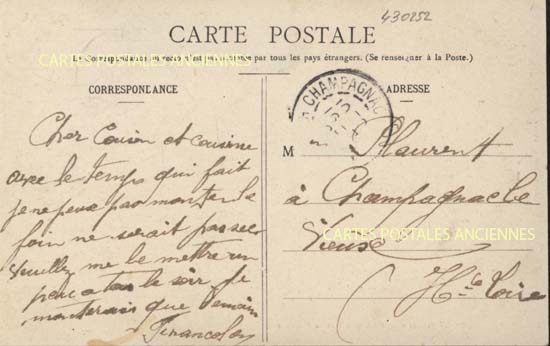 430252
CARTE POSTALE
CARTES POSTALES ANCIENNES
La Correspondance au recto n'est pas acceptée par tous les pays étrangers. (Se renseigner à la Poste.)
CORRESPONDANCE
Cher Cousin et cousine
avec le temps qui fait
je ne peux pas monter le
foin ne serait pas sec
Veuillez me le mettre un
peu a tas le soir je
monterais que demain
CHAMPAGNAC
ADRESSE
M Maurent
à Champagnac le
Vieux
CARTES POSTALES ANCIENNES
Hte Loire